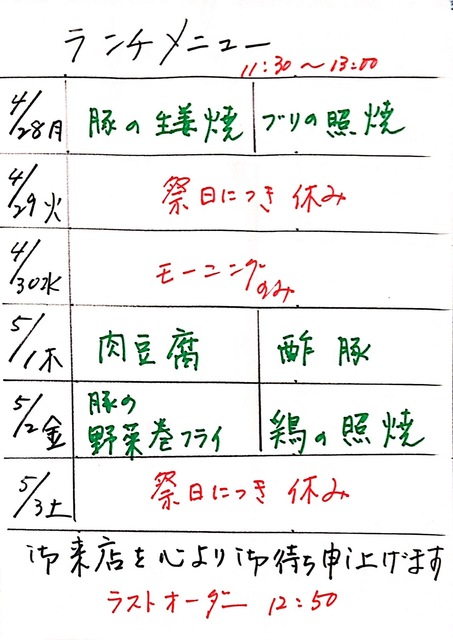 ランチメニュー
11:30～13:00
4/28月 豚の生姜焼 ブリの照焼
4/29火 祭日につき休み
4/30水 モーニングのみ
5/1木 肉豆腐 酢豚
5/2金 豚の野菜巻フライ 鶏の照焼
5/3土 祭日につき休み
御来店を心より御待ち申上げます
ラストオーダー 12:50